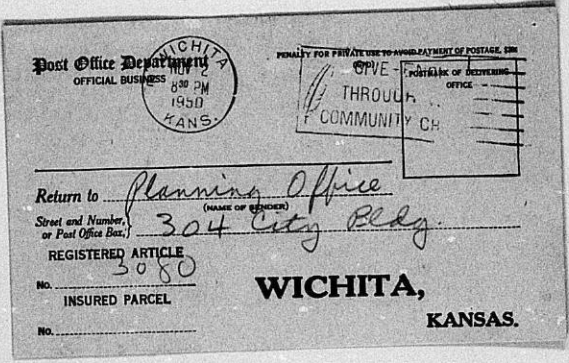 Post Office Department
OFFICIAL BUSINESS
WICHITA
NOV 2
8 30 PM
1950
KANS.
PENALTY FOR PRIVATE USE TO AVOID PAYMENT OF POSTAGE, $300
(GPO)
GIVE
THROUGH
COMMUNITY CH
POSTMARK OF DELIVERING
OFFICE
Return to Planning Office
(NAME OF SENDER)
Street and Number,
or Post Office Box, } 304 City Bldg.
REGISTERED ARTICLE
No. 3080
INSURED PARCEL
No.
WICHITA,
KANSAS.